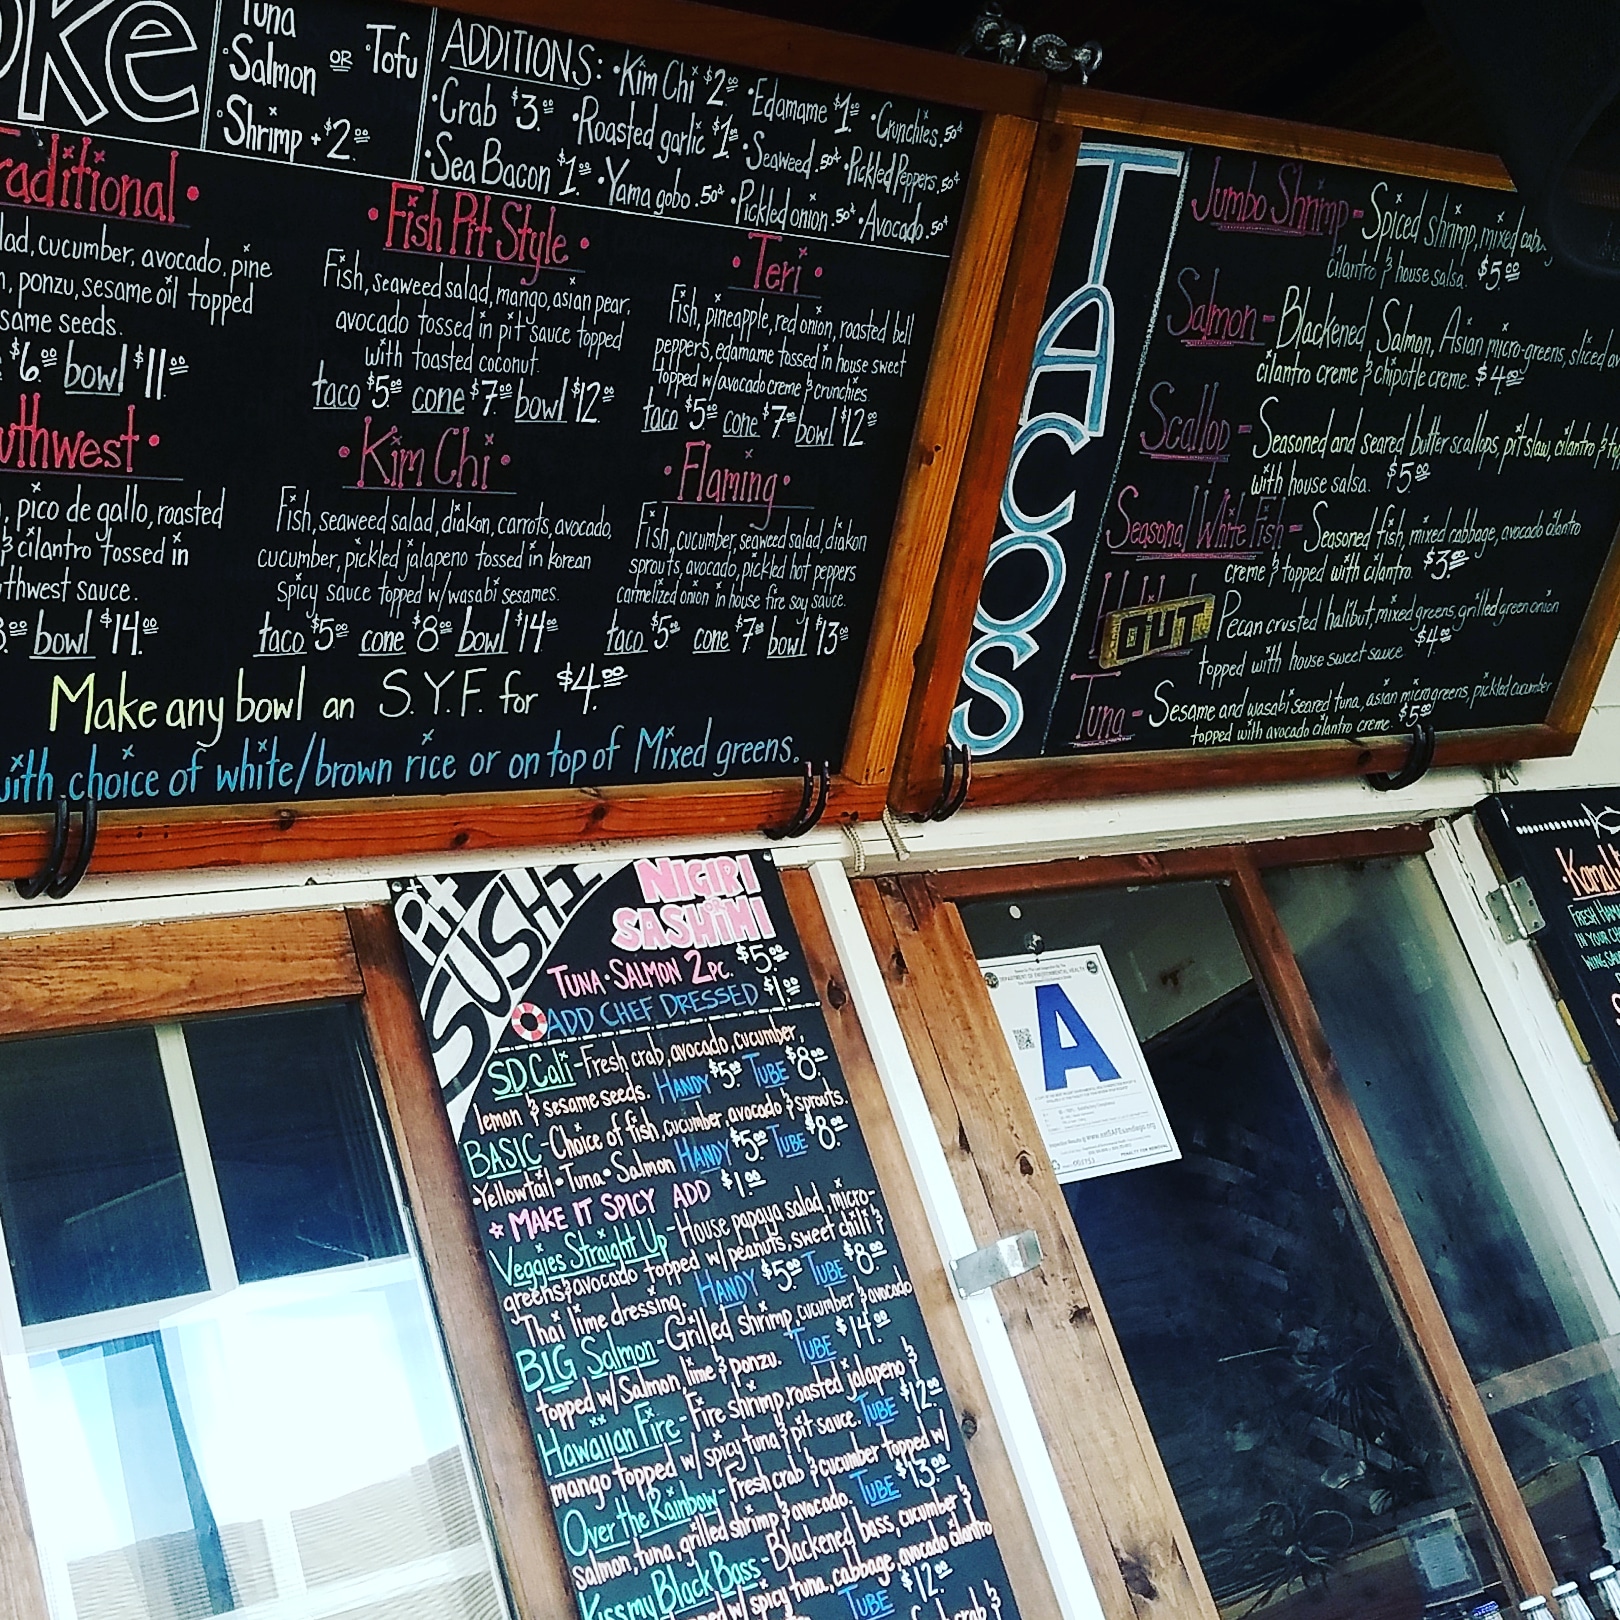 Ke
Tuna
Salmon OR Tofu
Shrimp + $2.00
ADDITIONS: Kim Chi $2.00 Edamame $1.00 Crunchies .50¢
Crab $3.00 Roasted garlic $1.00 Seaweed .50¢ Pickled Peppers .50¢
Sea Bacon $1.00 Yama gobo .50¢ Pickled onion .50¢ Avocado .50¢
raditional
lad, cucumber, avocado, pine
ponzu, sesame oil topped
same seeds.
$6.00 bowl $11.00
Fish Pit Style
Fish, seaweed salad, mango, asian pear,
avocado tossed in pit sauce topped
with toasted coconut.
taco $5.00 cone $7.00 bowl $12.00
Teri
Fish, pineapple, red onion, roasted bell
peppers, edamame tossed in house sweet
topped w/avocado creme & crunchies.
taco $5.00 cone $7.00 bowl $12.00
uthwest
pico de gallo, roasted
& cilantro tossed in
thwest sauce.
bowl $14.00
Kim Chi
Fish, seaweed salad, diakon, carrots, avocado,
cucumber, pickled jalapeno tossed in korean
spicy sauce topped w/wasabi sesames.
taco $5.00 cone $8.00 bowl $14.00
Flaming
Fish, cucumber, seaweed salad, diakon
sprouts, avocado, pickled hot peppers
carmelized onion in house fire soy sauce.
taco $5.00 cone $7.00 bowl $13.00
Make any bowl an S.Y.F. for $4.00
with choice of white/brown rice or on top of Mixed greens.
TACOS
Jumbo Shrimp - Spiced shrimp, mixed cab
cilantro & house salsa. $5.00
Salmon - Blackened Salmon, Asian micro-greens, sliced av
cilantro creme & chipotle creme. $4.00
Scallop - Seasoned and seared butter scallops, pit slaw, cilantro &
with house salsa. $5.00
Seasonal White Fish - Seasoned fish, mixed cabbage, avocado cilantro
creme & topped with cilantro. $3.00
OUT Pecan crusted halibut, mixed greens, grilled green onion
topped with house sweet sauce $4.00
Tuna - Sesame and wasabi seared tuna, asian microgreens, pickled cucumber
topped with avocado cilantro creme $5.00
Pit SUSHI
NIGIRI
OR
SASHIMI
TUNA · SALMON 2PC. $5.00
ADD CHEF DRESSED $1.00
SD Cali - Fresh crab, avocado, cucumber,
lemon & sesame seeds. HANDY $5.00 TUBE $8.00
BASIC - Choice of fish, cucumber, avocado & sprouts.
Yellowtail · Tuna · Salmon HANDY $5.00 TUBE $8.00
MAKE IT SPICY ADD $1.00
Veggies Straight Up - House papaya salad, micro-
greens & avocado topped w/ peanuts, sweet chili &
Thai lime dressing. HANDY $5.00 TUBE $8.00
BIG Salmon - Grilled shrimp, cucumber & avocado
topped w/ Salmon, lime & ponzu. TUBE $14.00
Hawaiian Fire - Fire shrimp, roasted jalapeno &
mango topped w/ spicy tuna & pit sauce. TUBE $12.00
Over the Rainbow - Fresh crab & cucumber topped w/
salmon, tuna, grilled shrimp & avocado. TUBE $13.00
Kiss my Black Bass - Blackened bass, cucumber &
topped w/ spicy tuna, cabbage, avocado cilantro
TUBE $12.00
crab &
DEPARTMENT OF ENVIRONMENTAL HEALTH
A
Kama
FRESH HAMA
IN YOUR CH
WING SAU